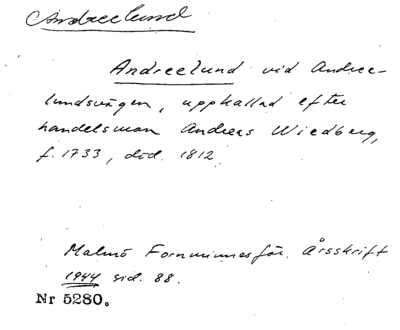 Andreelund
Andreelund vid Andree-
lundsvägen, uppkallad efter
handelsman Andreas Wiedberg,
f. 1733, död. 1812.
Malmö Fornminnesför. Årsskrift
1944 sid. 88.
Nr 5280.